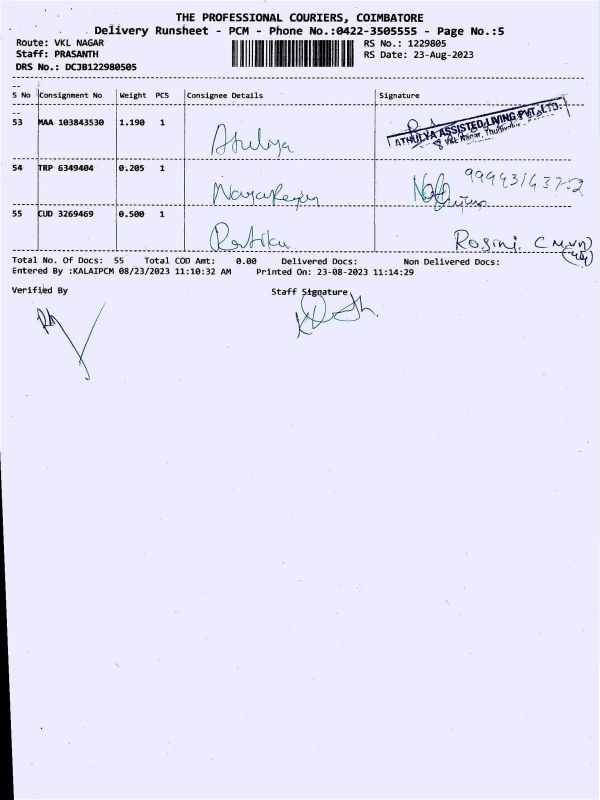 THE PROFESSIONAL COURIERS, COIMBATORE
Delivery Runsheet - PCM - Phone No.:0422-3505555 - Page No.:5
Route: VKL NAGAR RS No.: 1229805
Staff: PRASANTH RS Date: 23-Aug-2023
DRS No.: DCJB122980505
S No Consignment No Weight PCS Consignee Details Signature
53 MAA 103843530 1.190 1 Athulya ATHULYA ASSISTED LIVING PVT. LTD.
54 TRP 6349404 0.205 1
55 CUD 3269469 0.500 1 Rosini
Total No. Of Docs: 55 Total COD Amt: 0.00 Delivered Docs: Non Delivered Docs:
Entered By :KALAIPCM 08/23/2023 11:10:32 AM Printed On: 23-08-2023 11:14:29
Verified By Staff Signature